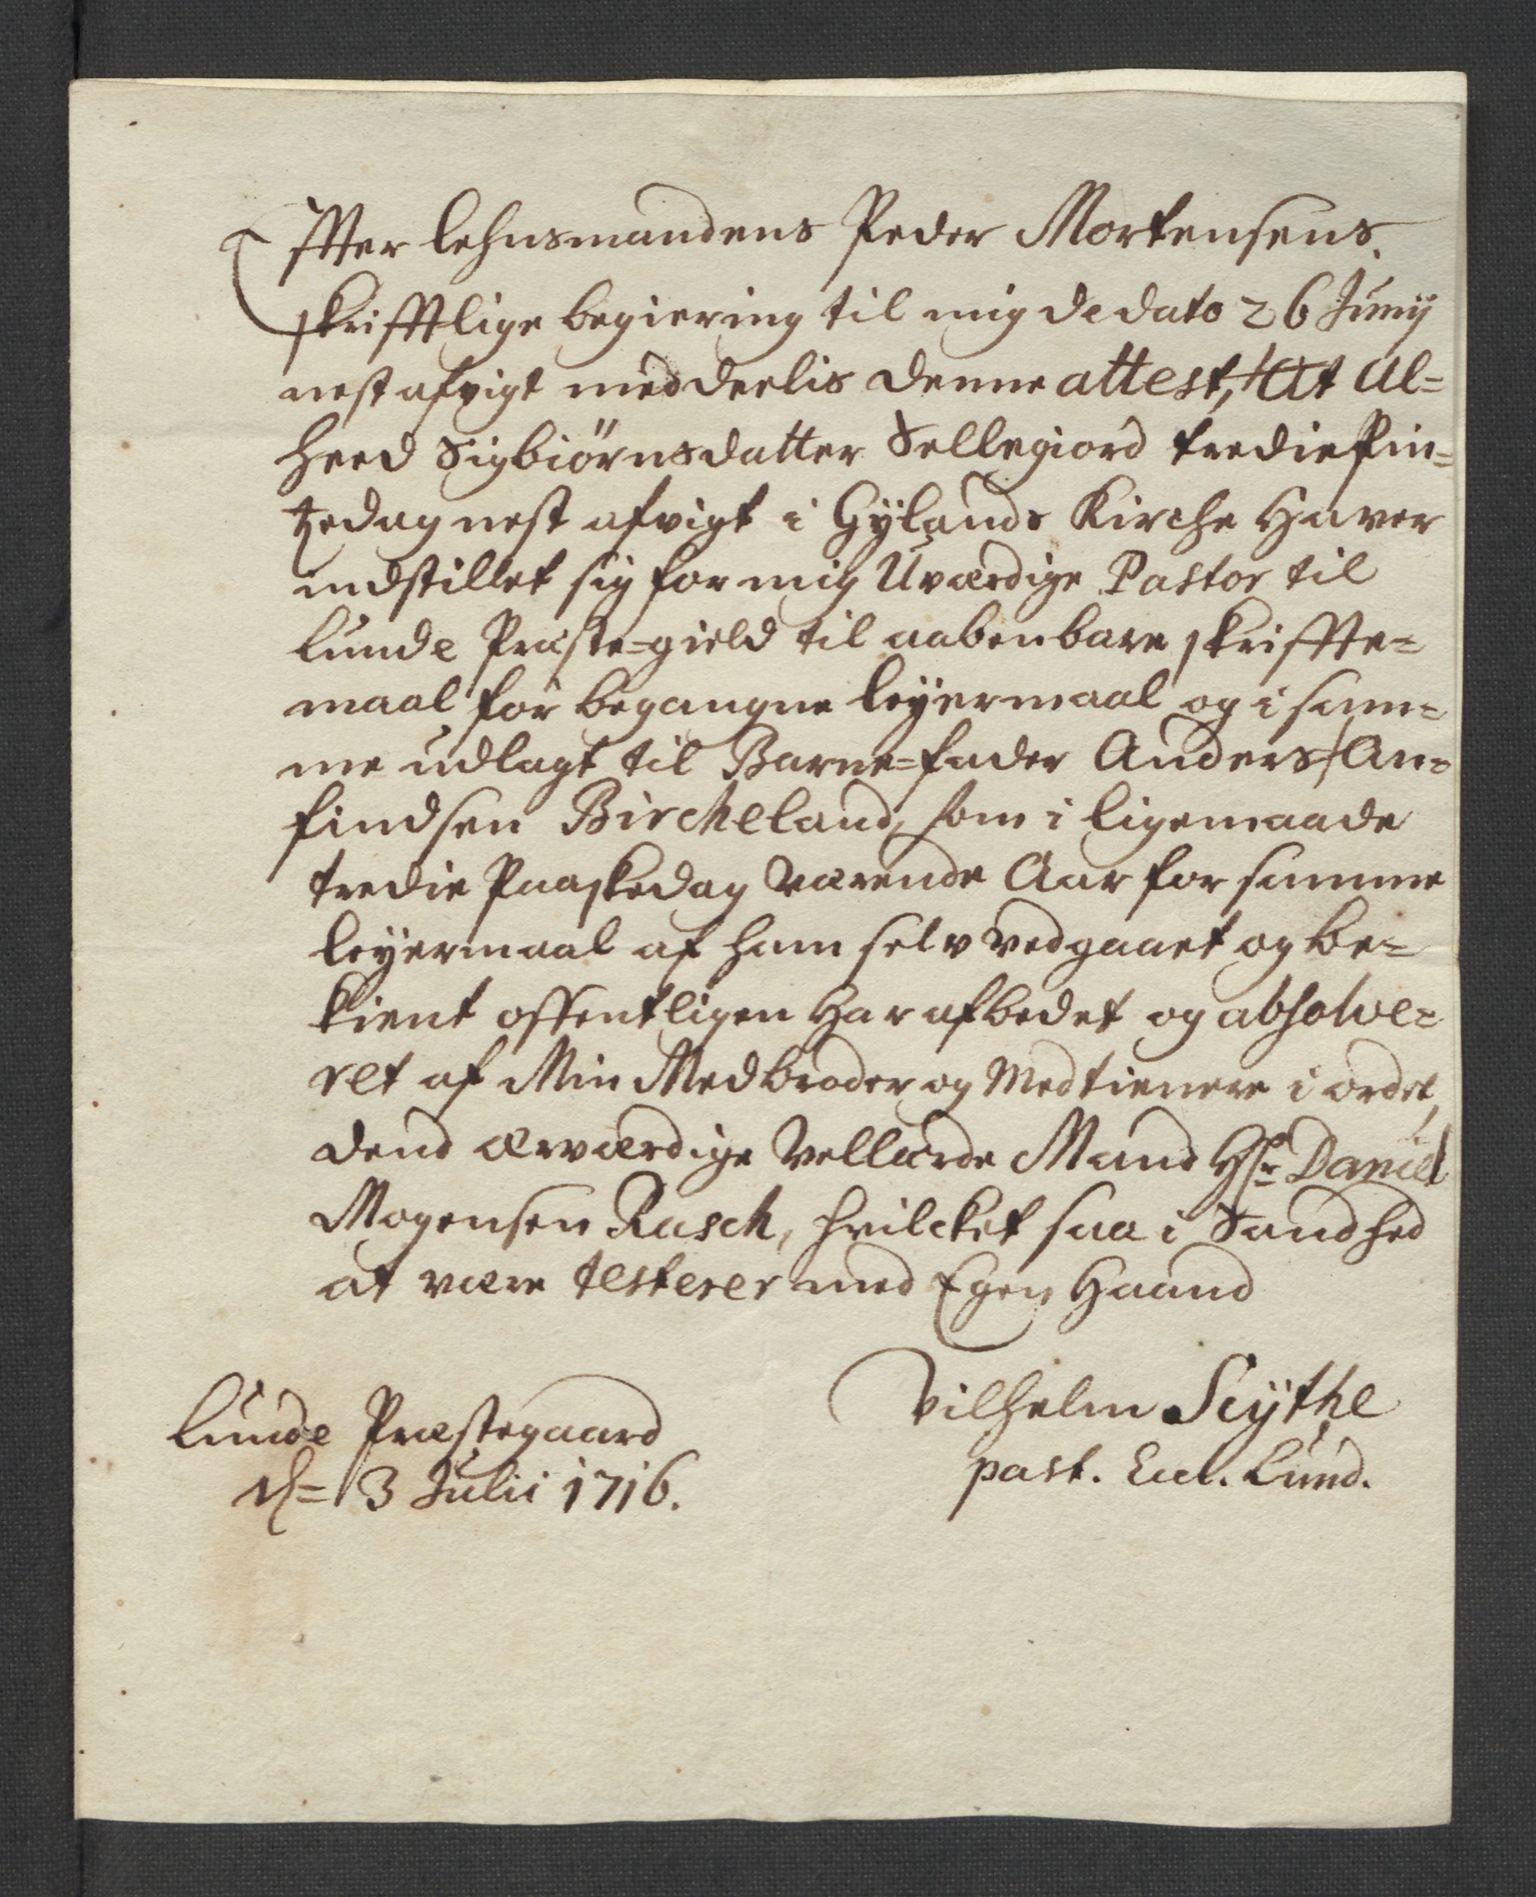 Effter lehnsmandens Peder Mortensens
skrifftlige begiering til mig de dato 26 Junij
nest afvigt meddeelis denne attest, At Al=
heed Sigbiörnsdatter Sellegiord tredie Pin=
tzedag nest afvigt i Gÿlands Kirche Haver
indstillet sig for mig Uværdige Pastor til
Lunde Præste=gield til aabenbare skriffte=
maal for begangne leÿermaal og i sam=
me udlagt til Barne=fader Anders An=
findsen Bircheland, som i ligemaade
tredie Paaskedag værende Aar for samme
leÿermaal af ham selv vedgaaet og be=
kient offentligen Har afbedet og absolve=
ret af Min Medbroder og Medtienere i ordet,
dend ærværdige Vellærde Mand Hr Daniel
Mogensen Rasch, hvilcket saa i Sandhed
at være testerer med Egen Haand
Vilhelm Scÿthe
past. Eccl. Lund.
Lunde Præstegaard
d= 3 Julii 1716.